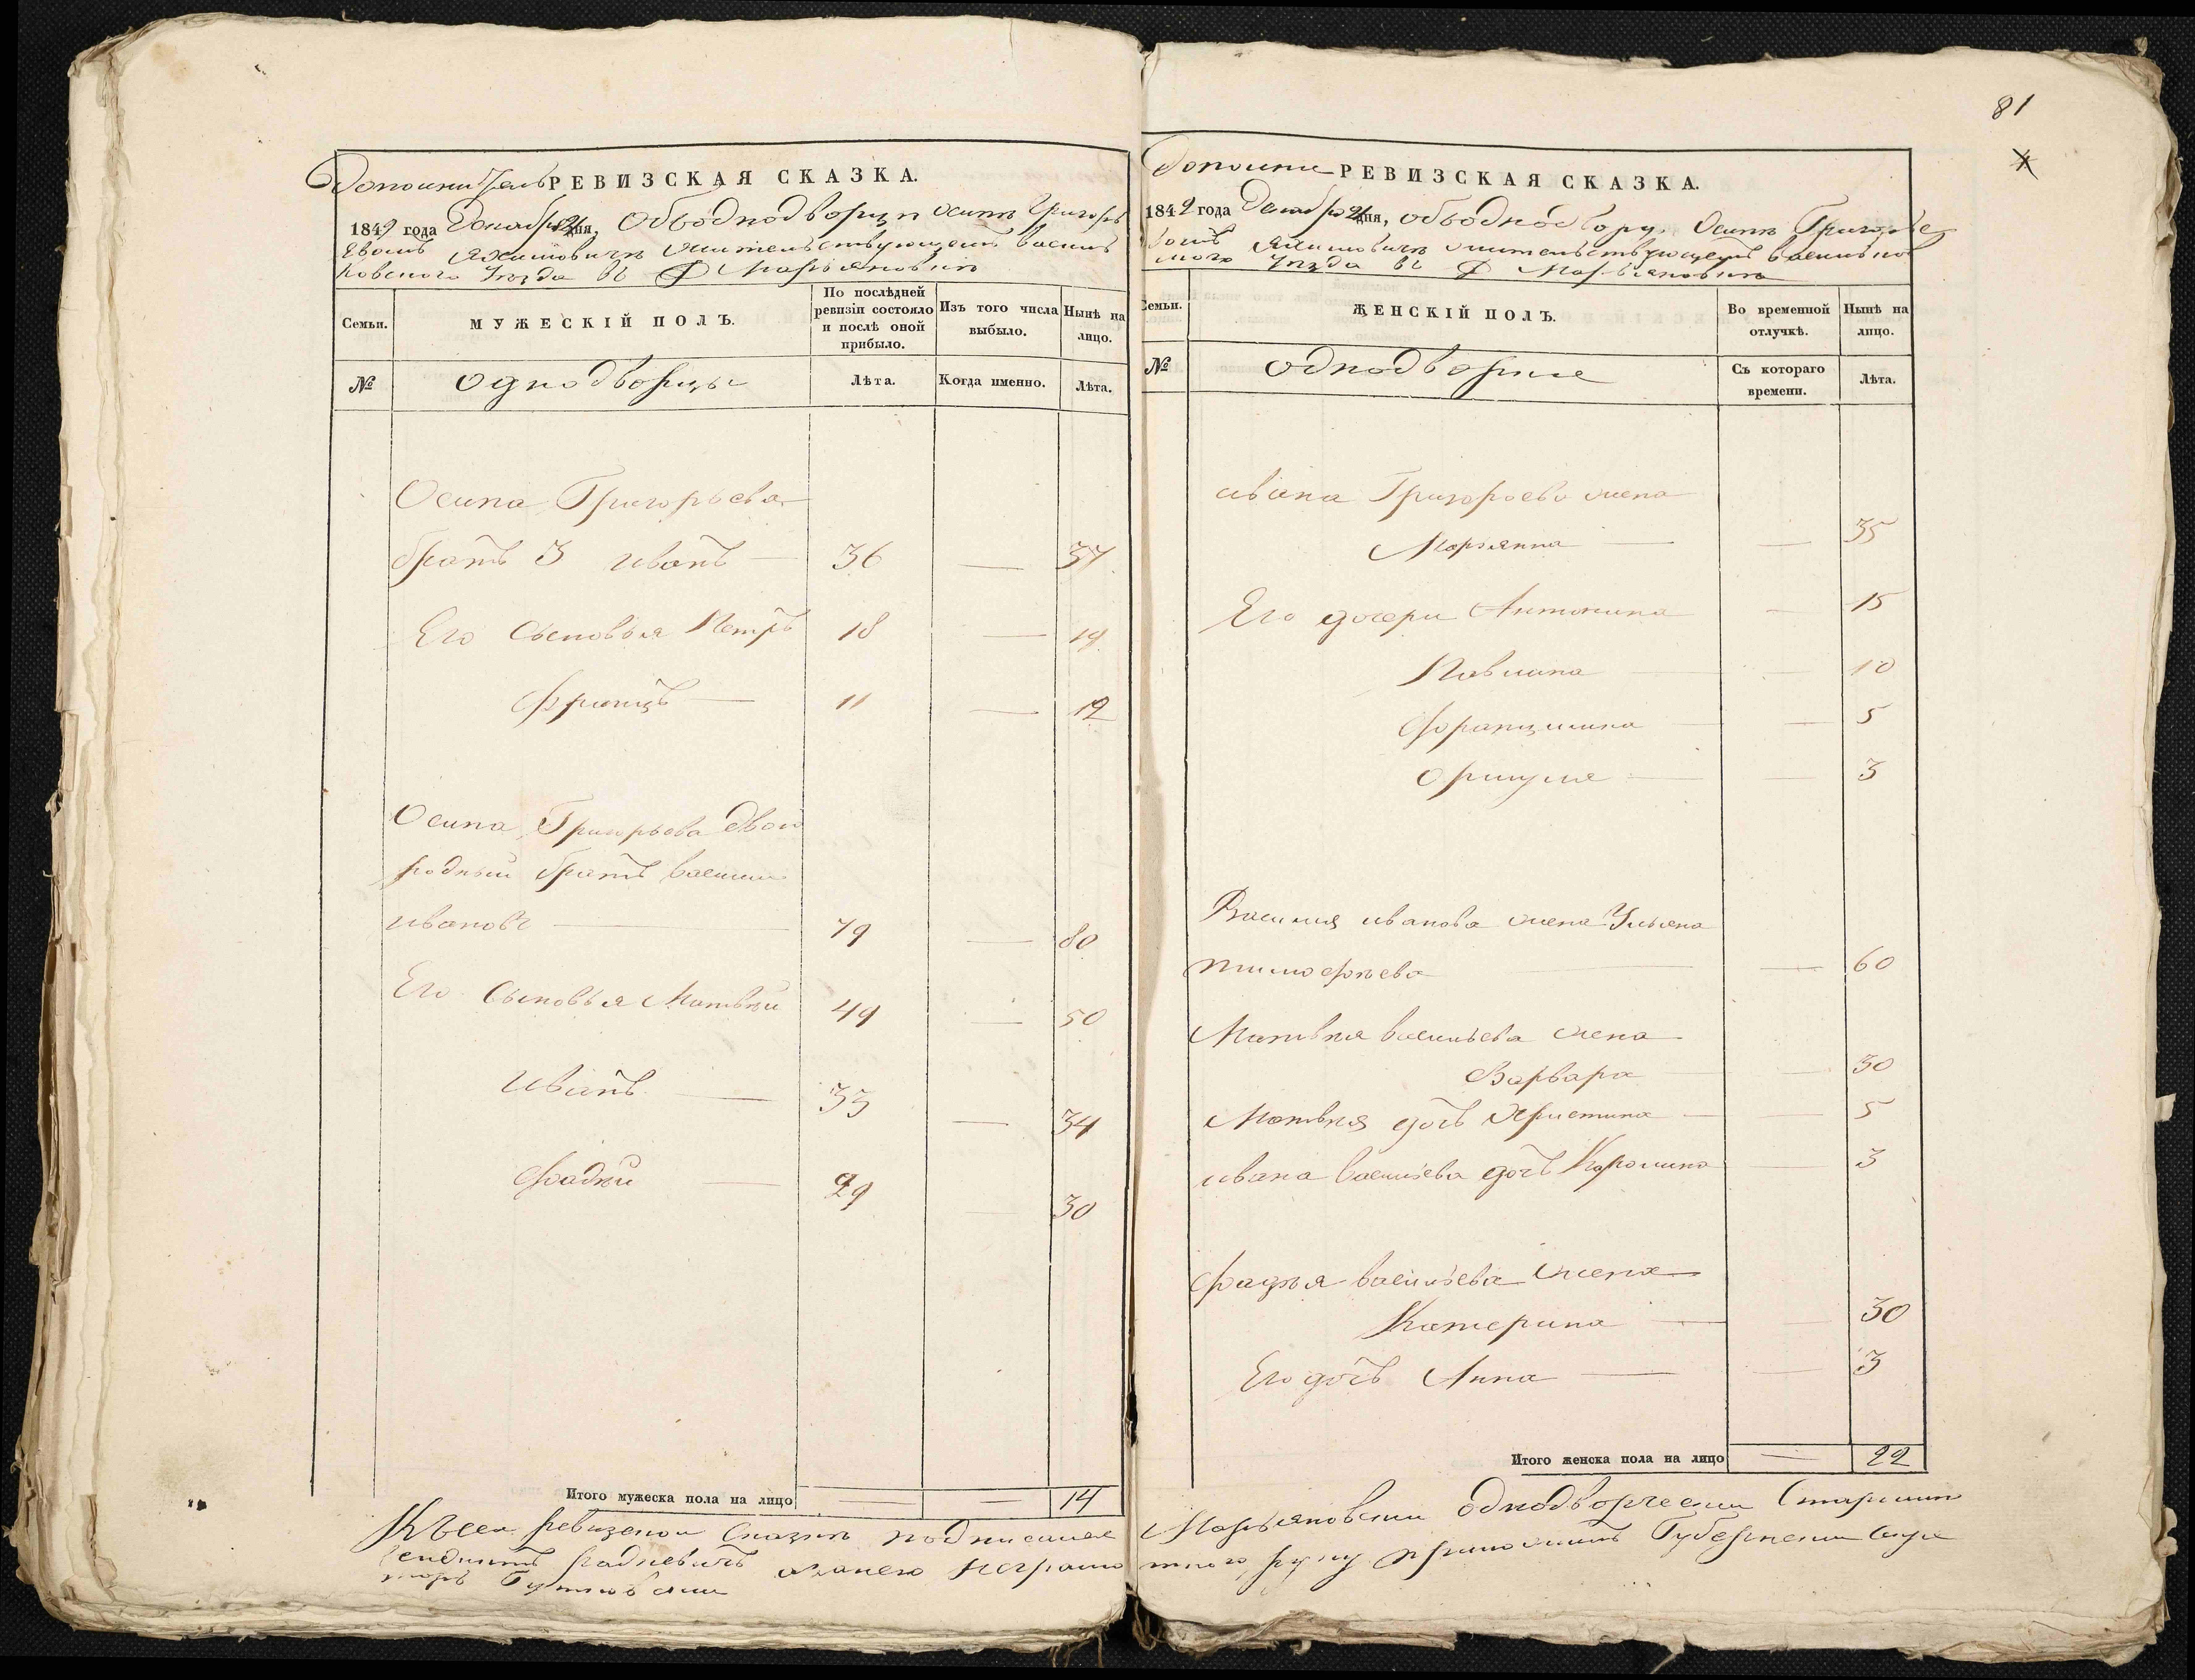 Дополнитель РЕВИЗСКАЯ СКАЗКА.
1842 года Декабря 21 дня, Объ однодворцѣ Осипѣ Григорь
евомъ жительствующемъ Василь
ковского Уѣзда въ Д Марьяновкѣ
Семьи.
МУЖЕСКІЙ ПОЛЪ.
По послѣдней
ревизіи состояло
и послѣ оной
прибыло.
Изъ того числа
выбыло.
Нынѣ на
лицо.
№
Однодворцы
Лѣта.
Когда именно.
Лѣта.
Осипа Григорьева
братъ 3 иванъ — 36 — 37
Его Сыновья Петръ 18 — 19
Францъ — 11 — 12
Осипа Григорьева двою
родный братъ василий
ивановъ — 79 — 80
Его Сыновья Матвѣй 49 — 50
Иванъ — 33 — 34
Фадѣй — 29 30
Итого мужеска пола на лицо — — 14
Къ сей ревизской Сказкѣ подписался
неграмо
81
Дополни РЕВИЗСКАЯ СКАЗКА.
1842 года Декабря 21 дня, объ однодворцѣ Осипѣ Григорье
вомъ жительствующемъ васильков
ского Уѣзда въ Д Марьяновкѣ
Семьи.
ЖЕНСКІЙ ПОЛЪ.
Во временной
отлучкѣ.
Нынѣ на
лицо.
№
Однодворце
Съ котораго
времени.
Лѣта.
ивана Григорьева жена
Марьянна — — 35
Его дочери Антонина — 15
Павлина — — 10
Францишка — — 5
Оршуля — — 3
Василия иванова жена Ульяна
тимофѣева — — 60
Матвѣя васильева жена
Варвара — — 30
Матвѣя дочь Христина — — 5
ивана васильева дочь Каролина — 3
Фадѣя васильева жена
Катерина — — 30
Его дочь Анна — — 3
Итого женска пола на лицо — 22
Марьяновский однодворческий Старшина
тного руку приложилъ Губернский